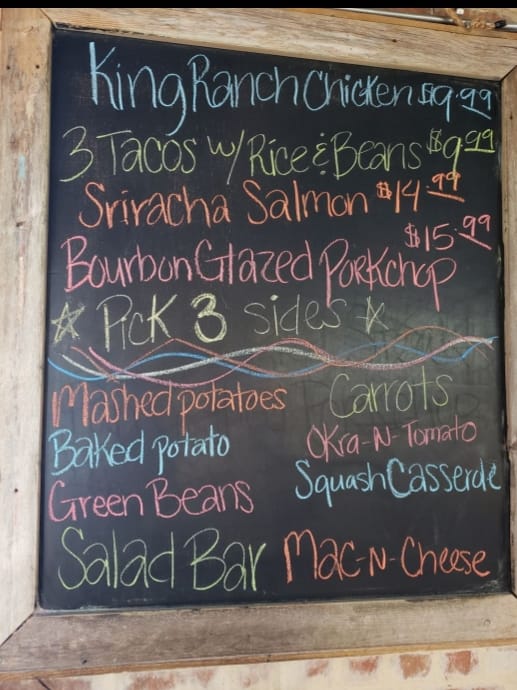 King Ranch Chicken $9.99
3 Tacos w/ Rice & Beans $9.99
Sriracha Salmon $14.99
$15.99
Bourbon Glazed Porkchop
☆ Pick 3 sides ☆
Mashed potatoes
Carrots
Baked potato
Okra-N-Tomato
Green Beans
Squash Casserole
Salad Bar
Mac-N-Cheese